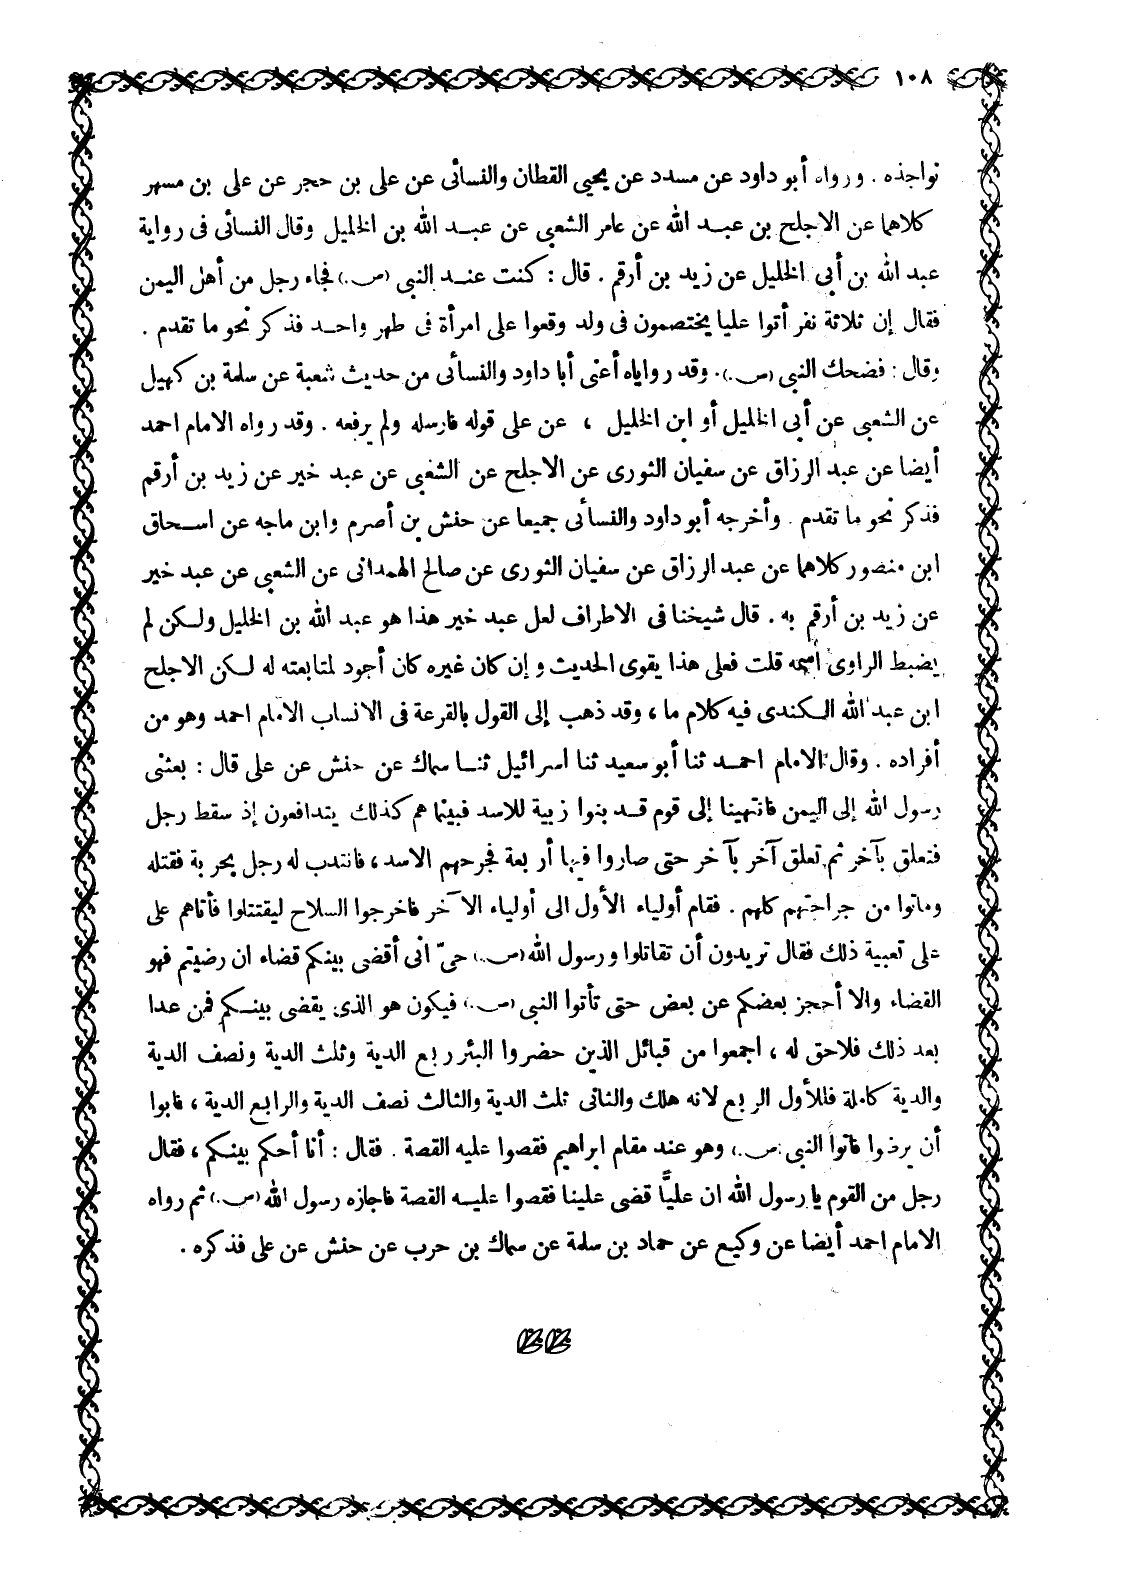 ١٠٨
نواجذه . ورواه أبو داود عن مسدد عن يحيى القطان والنسائى عن على بن حجر عن على بن مسهر
كلاهما عن الاجلح بن عبد الله عن عامر الشعبى عن عبد الله بن الخليل وقال النسائى فى رواية
عبد الله بن أبى الخليل عن زيد بن أرقم . قال : كنت عند النبى (ص.) فجاء رجل من أهل اليمن
فقال إن ثلاثة نفر أتوا عليا يختصمون فى ولد وقعوا على امرأة فى طهر واحد فذكر نحو ما تقدم .
وقال : فضحك النبى (ص.). وقد روياه أعنى أبا داود والنسائى من حديث شعبة عن سلمة بن كهيل
عن الشعبى عن أبى الخليل أو ابن الخليل ، عن على قوله فارسله ولم يرفعه . وقد رواه الامام احمد
أيضا عن عبد الرزاق عن سفيان الثورى عن الاجلح عن الشعبى عن عبد خير عن زيد بن أرقم
فذكر نحو ما تقدم . وأخرجه أبو داود والنسائى جميعا عن حنش بن أصرم وابن ماجه عن اسحاق
ابن منصور كلاهما عن عبد الرزاق عن سفيان الثورى عن صالح الهمدانى عن الشعبى عن عبد خير
عن زيد بن أرقم به . قال شيخنا فى الاطراف لعل عبد خير هذا هو عبد الله بن الخليل ولكن لم
يضبط الراوى اسمه قلت فعلى هذا يقوى الحديث وإن كان غيره كان أجود لمتابعته له لكن الاجلح
ابن عبد الله الكندى فيه كلام ما ، وقد ذهب إلى القول بالقرعة فى الانساب الامام احمد وهو من
أفراده . وقال الامام احمد ثنا أبو سعيد ثنا اسرائيل ثنا سماك عن حنش عن على قال : بعثنى
رسول الله إلى اليمن فانتهينا إلى قوم قد بنوا زبية للاسد فبينما هم كذلك يتدافعون إذ سقط رجل
فتعلق بآخر ثم تعلق آخر بآخر حتى صاروا فيها أربعة فجرحهم الاسد ، فانتدب له رجل بحربة فقتله
وماتوا من جراحتهم كلهم . فقام أولياء الأول الى أولياء الآخر فاخرجوا السلاح ليقتتلوا فأتاهم على
على تعبية ذلك فقال تريدون أن تقاتلوا ورسول الله (ص.) حىّ انى أقضى بينكم قضاء ان رضيتم فهو
القضاء والا أحجز بعضكم عن بعض حتى تأتوا النبى (ص.) فيكون هو الذى يقضى بينكم فمن عدا
بعد ذلك فلاحق له ، اجمعوا من قبائل الذين حضروا البئر ربع الدية وثلث الدية ونصف الدية
والدية كاملة فللأول الربع لانه هلك والثانى ثلث الدية والثالث نصف الدية والرابع الدية ، فابوا
أن يرضوا فاتوا النبى (ص.) وهو عند مقام ابراهيم فقصوا عليه القصة . فقال : أنا أحكم بينكم ، فقال
رجل من القوم يا رسول الله ان عليًّا قضى علينا فقصوا عليه القصة فاجازه رسول الله (ص.) ثم رواه
الامام احمد أيضا عن وكيع عن حماد بن سلمة عن سماك بن حرب عن حنش عن على فذكره .